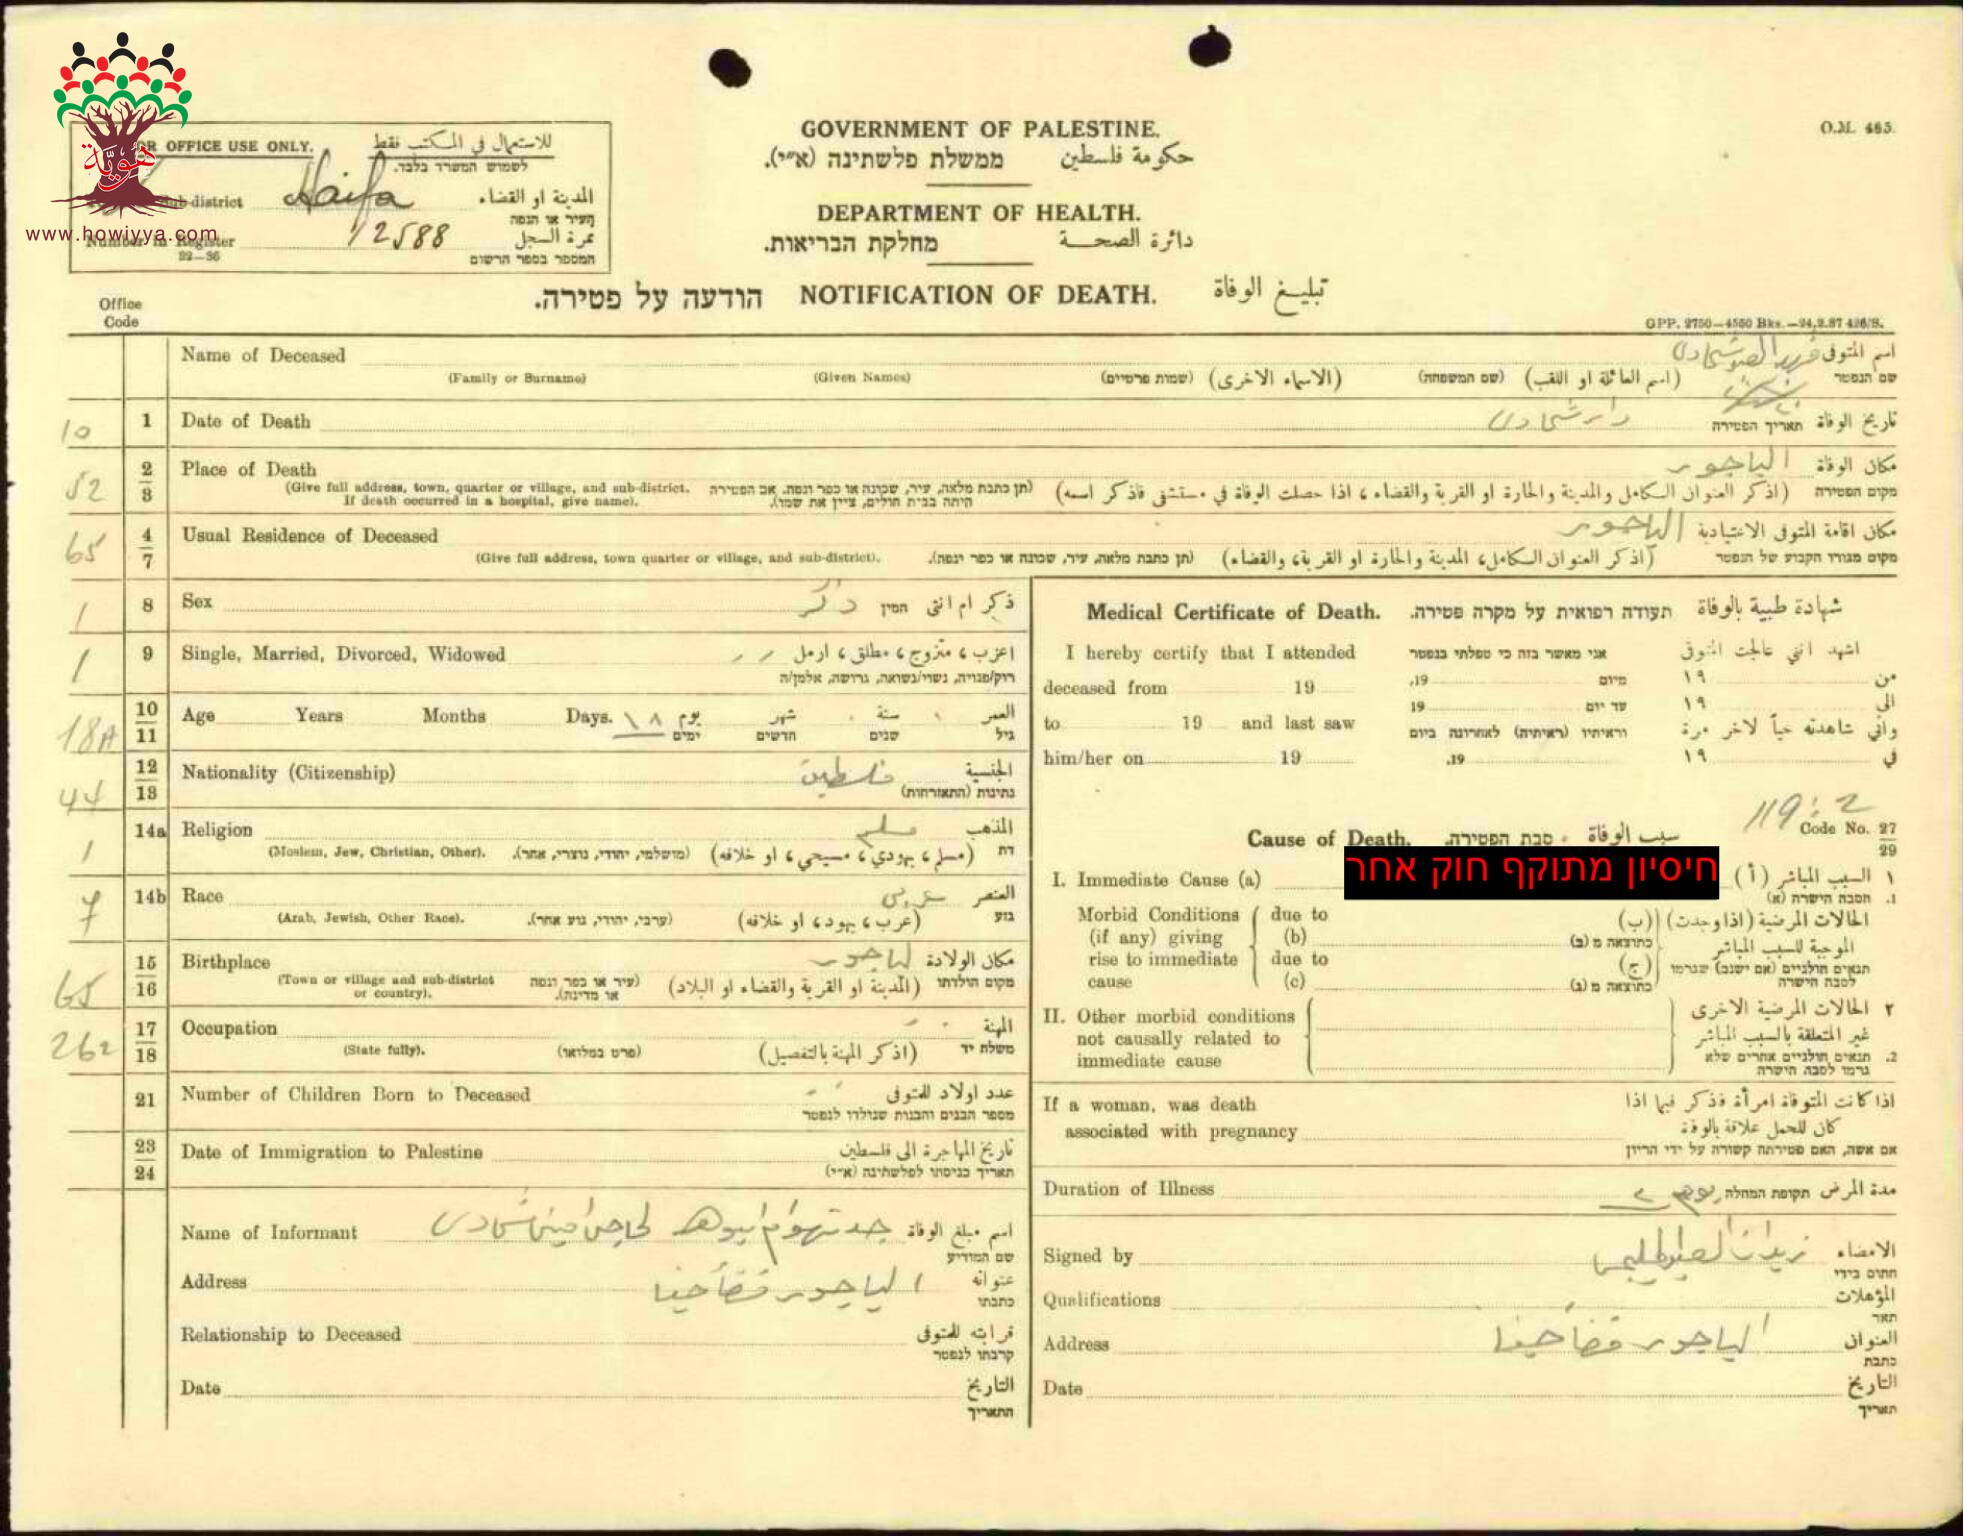 هويّة
www.howiyya.com
O.M. 465.
FOR OFFICE USE ONLY. للاستعمال في المكتب فقط
לשמוש המשרד בלבד.
Sub-district Haifa المدينة او القضاء
העיר או הנפה
Number in Register 12588 نمرة السجل
22—36 המספר בספר הרשום
GOVERNMENT OF PALESTINE.
ממשלת פלשתינה (א״י). حكومة فلسطين
DEPARTMENT OF HEALTH.
מחלקת הבריאות. دائرة الصحة
הודעה על פטירה. NOTIFICATION OF DEATH. تبليغ الوفاة
Office Code
GPP. 2750—4550 Bks.—24.2.37 426/S.
Name of Deceased اسم المتوفى
(Family or Surname) (Given Names) (שמות פרטיים) (الاسماء الاخرى) (שם המשפחה) (اسم العائلة او اللقب) שם הנפטר
10 1 Date of Death تاريخ الوفاة תאריך הפטירה
52 2 3 Place of Death الياجور مكان الوفاة
(Give full address, town, quarter or village, and sub-district. תן כתבת מלאה, עיר, שכונה או כפר ונפה. אם הפטירה) (اذكر العنوان الكامل والمدينة والحارة او القرية والقضاء، اذا حصلت الوفاة في مستشفى فاذكر اسمه) מקום הפטירה
If death occurred in a hospital, give name). היתה בבית חולים, ציין את שמו).
65 4 7 Usual Residence of Deceased الياجور مكان اقامة المتوفى الاعتيادية
(Give full address, town quarter or village, and sub-district). (תן כתבת מלאה, עיר, שכונה או כפר ונפה). (اذكر العنوان الكامل، المدينة والحارة او القرية، والقضاء) מקום מגורו הקבוע של הנפטר
1 8 Sex ذكر ذكر ام انثى המין
1 9 Single, Married, Divorced, Widowed اعزب، متزوج، مطلق، ارمل
רוק/פנויה, נשוי/נשואה, גרושה, אלמן/ה
18 10 11 Age Years Months Days. ١٨ يوم شهر سنة العمر
ימים חדשים שנים גיל
44 12 13 Nationality (Citizenship) فلسطين الجنسية
נתינות (התאזרחות)
1 14a Religion مسلم المذهب
(Moslem, Jew, Christian, Other). (מושלמי, יהודי, נוצרי, אחר). (مسلم، يهودي، مسيحي، او خلافه) דת
7 14b Race عربي العنصر
(Arab, Jewish, Other Race). (ערבי, יהודי, גזע אחר). (عرب، يهود، او خلافه) גזע
65 15 16 Birthplace الياجور مكان الولادة
(Town or village and sub-district or country). (עיר או כפר ונפה או מדינה). (المدينة او القرية والقضاء او البلاد) מקום הולדתו
262 17 18 Occupation المهنة
(State fully). (פרט במלואו) (اذكر المهنة بالتفصيل) משלח יד
21 Number of Children Born to Deceased عدد اولاد المتوفى
מספר הבנים והבנות שנולדו לנפטר
23 24 Date of Immigration to Palestine تاريخ المهاجرة الى فلسطين
תאריך כניסתו לפלשתינה (א״י)
Name of Informant اسم مبلغ الوفاة
שם המודיע
Address الياجور قضاء حيفا عنوانه
כתבתו
Relationship to Deceased قرابته للمتوفى
קרבתו לנפטר
Date التاريخ
התאריך
Medical Certificate of Death. תעודה רפואית על מקרה פטירה. شهادة طبية بالوفاة
I hereby certify that I attended אני מאשר בזה כי טפלתי בנפטר اشهد انني عالجت المتوفى
deceased from 19 מיום 19, من ١٩
to 19 and last saw עד יום 19 الى ١٩
וראיתיו (ראיתיה) לאחרונה ביום واني شاهدته حياً لاخر مرة
him/her on 19 19. في ١٩
119 2
Code No. 27 29
Cause of Death. סבת הפטירה. سبب الوفاة
חיסיון מתוקף חוק אחר
I. Immediate Cause (a) ١ السبب المباشر (أ)
1. הסבה הישרה (א)
Morbid Conditions due to الحالات المرضية (اذا وجدت) (ب)
(if any) giving (b) כתוצאה מ (ב) الموجبة للسبب المباشر
rise to immediate due to (ج) תנאים חולניים (אם ישנם) שגרמו
cause (c) כתוצאה מ (ג) לסבה הישרה
II. Other morbid conditions ٢ الحالات المرضية الاخرى
not causally related to غير المتعلقة بالسبب المباشر
immediate cause 2. תנאים חולניים אחרים שלא
גרמו לסבה הישרה
If a woman, was death اذا كانت المتوفاة امرأة فذكر فيما اذا
associated with pregnancy كان للحمل علاقة بالوفاة
אם אשה, האם פטירתה קשורה על ידי הריון
Duration of Illness תקופת המחלה مدة المرض
Signed by الامضاء
חתום בידי
Qualifications المؤهلات
תאר
Address الياجور قضاء حيفا العنوان
כתבת
Date التاريخ
תאריך